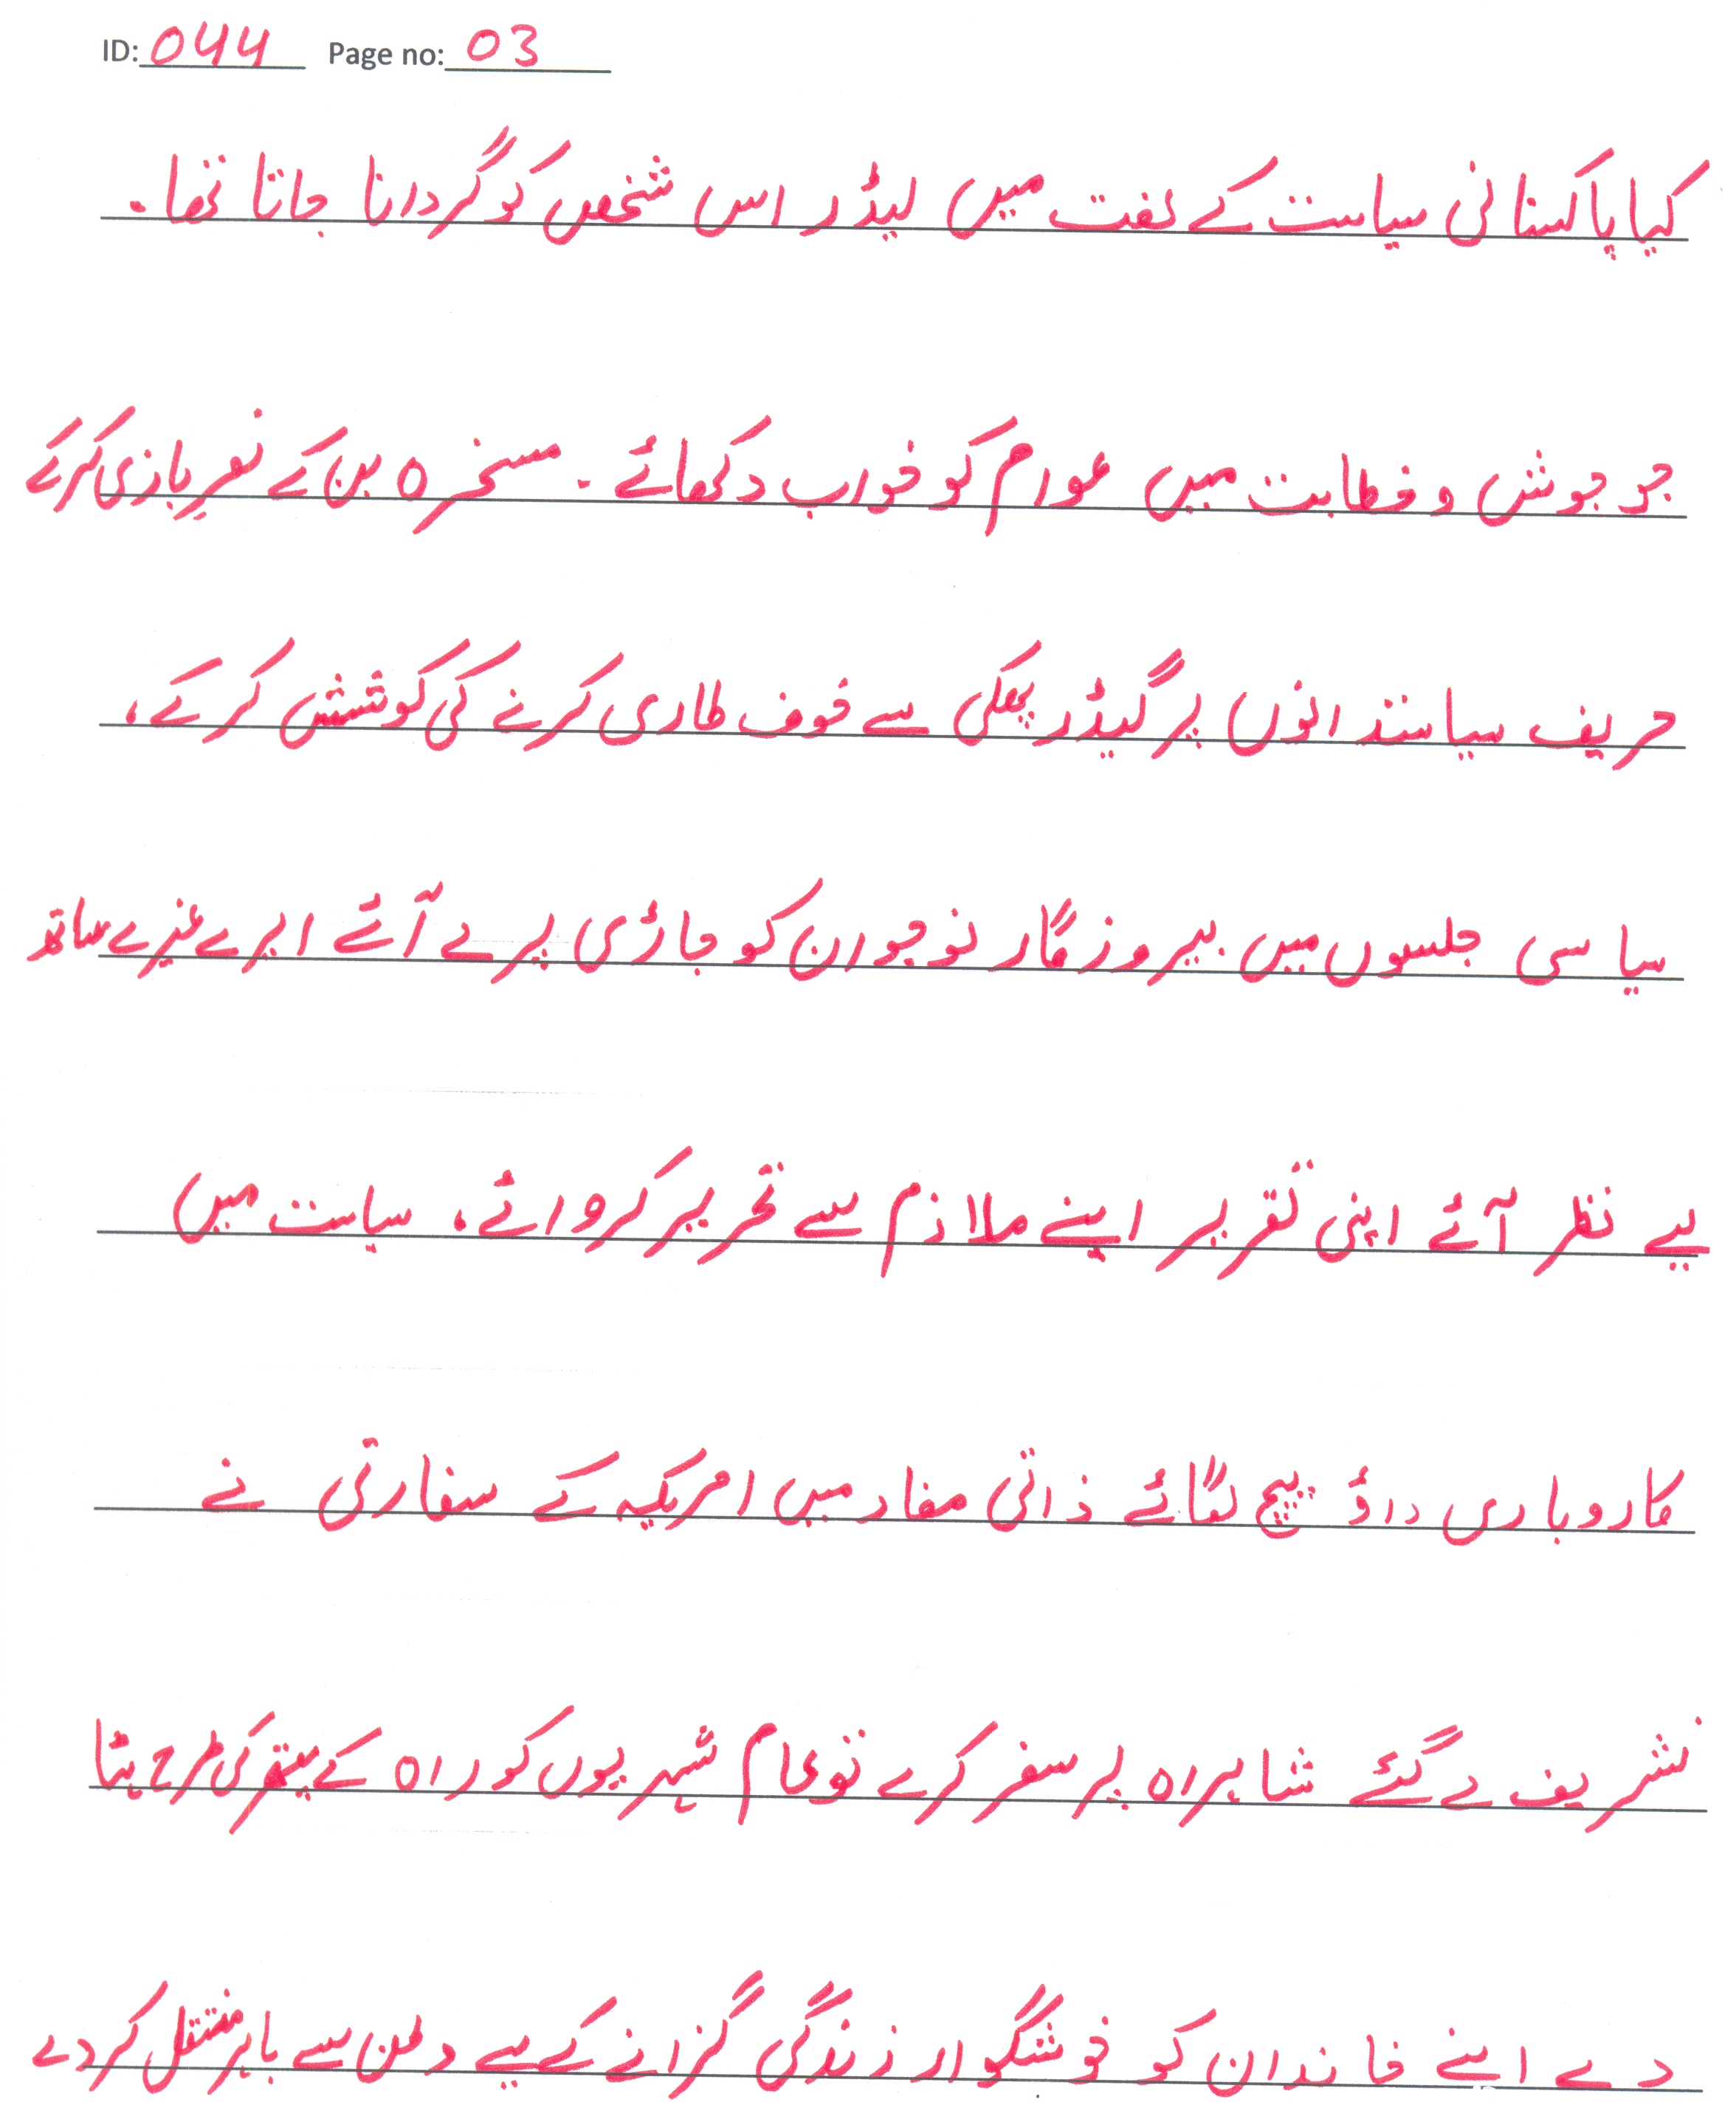 ID: 044 Page no: 03
کیا پاکستانی سیاست کے لغت میں لیڈر اس شخص کو گردانا جاتا تھا۔
جو جوش و خطابت میں عوام کو خواب دکھائے ۔ مسخرہ بن کے نعرِ بازی کرکے
حریف سیاستدانوں پر گیڈر بھپکی سے خوف طاری کرنے کی کوشش کر کے،
سیاسی جلسوں میں بیروزگار نوجوان کو جاڑی پر لے آئے ایرے غیرے ساتھ
لیے نظر آئے اپنی تقریر اپنے ملازم سے تحریر کروائے، سیاست میں
کاروباری داؤ پیچ لگائے ذاتی مفاد میں امریکہ کے سفارتی نے
تشریف لے گئے شاہراہ پر سفر کرے تو عام شہریوں کو راہ کے پتھر کی طرح ہٹا
دے اپنے خاندان کو خوشگوار زندگی گزانے کے لیے وطن سے باہر منتقل کر دے